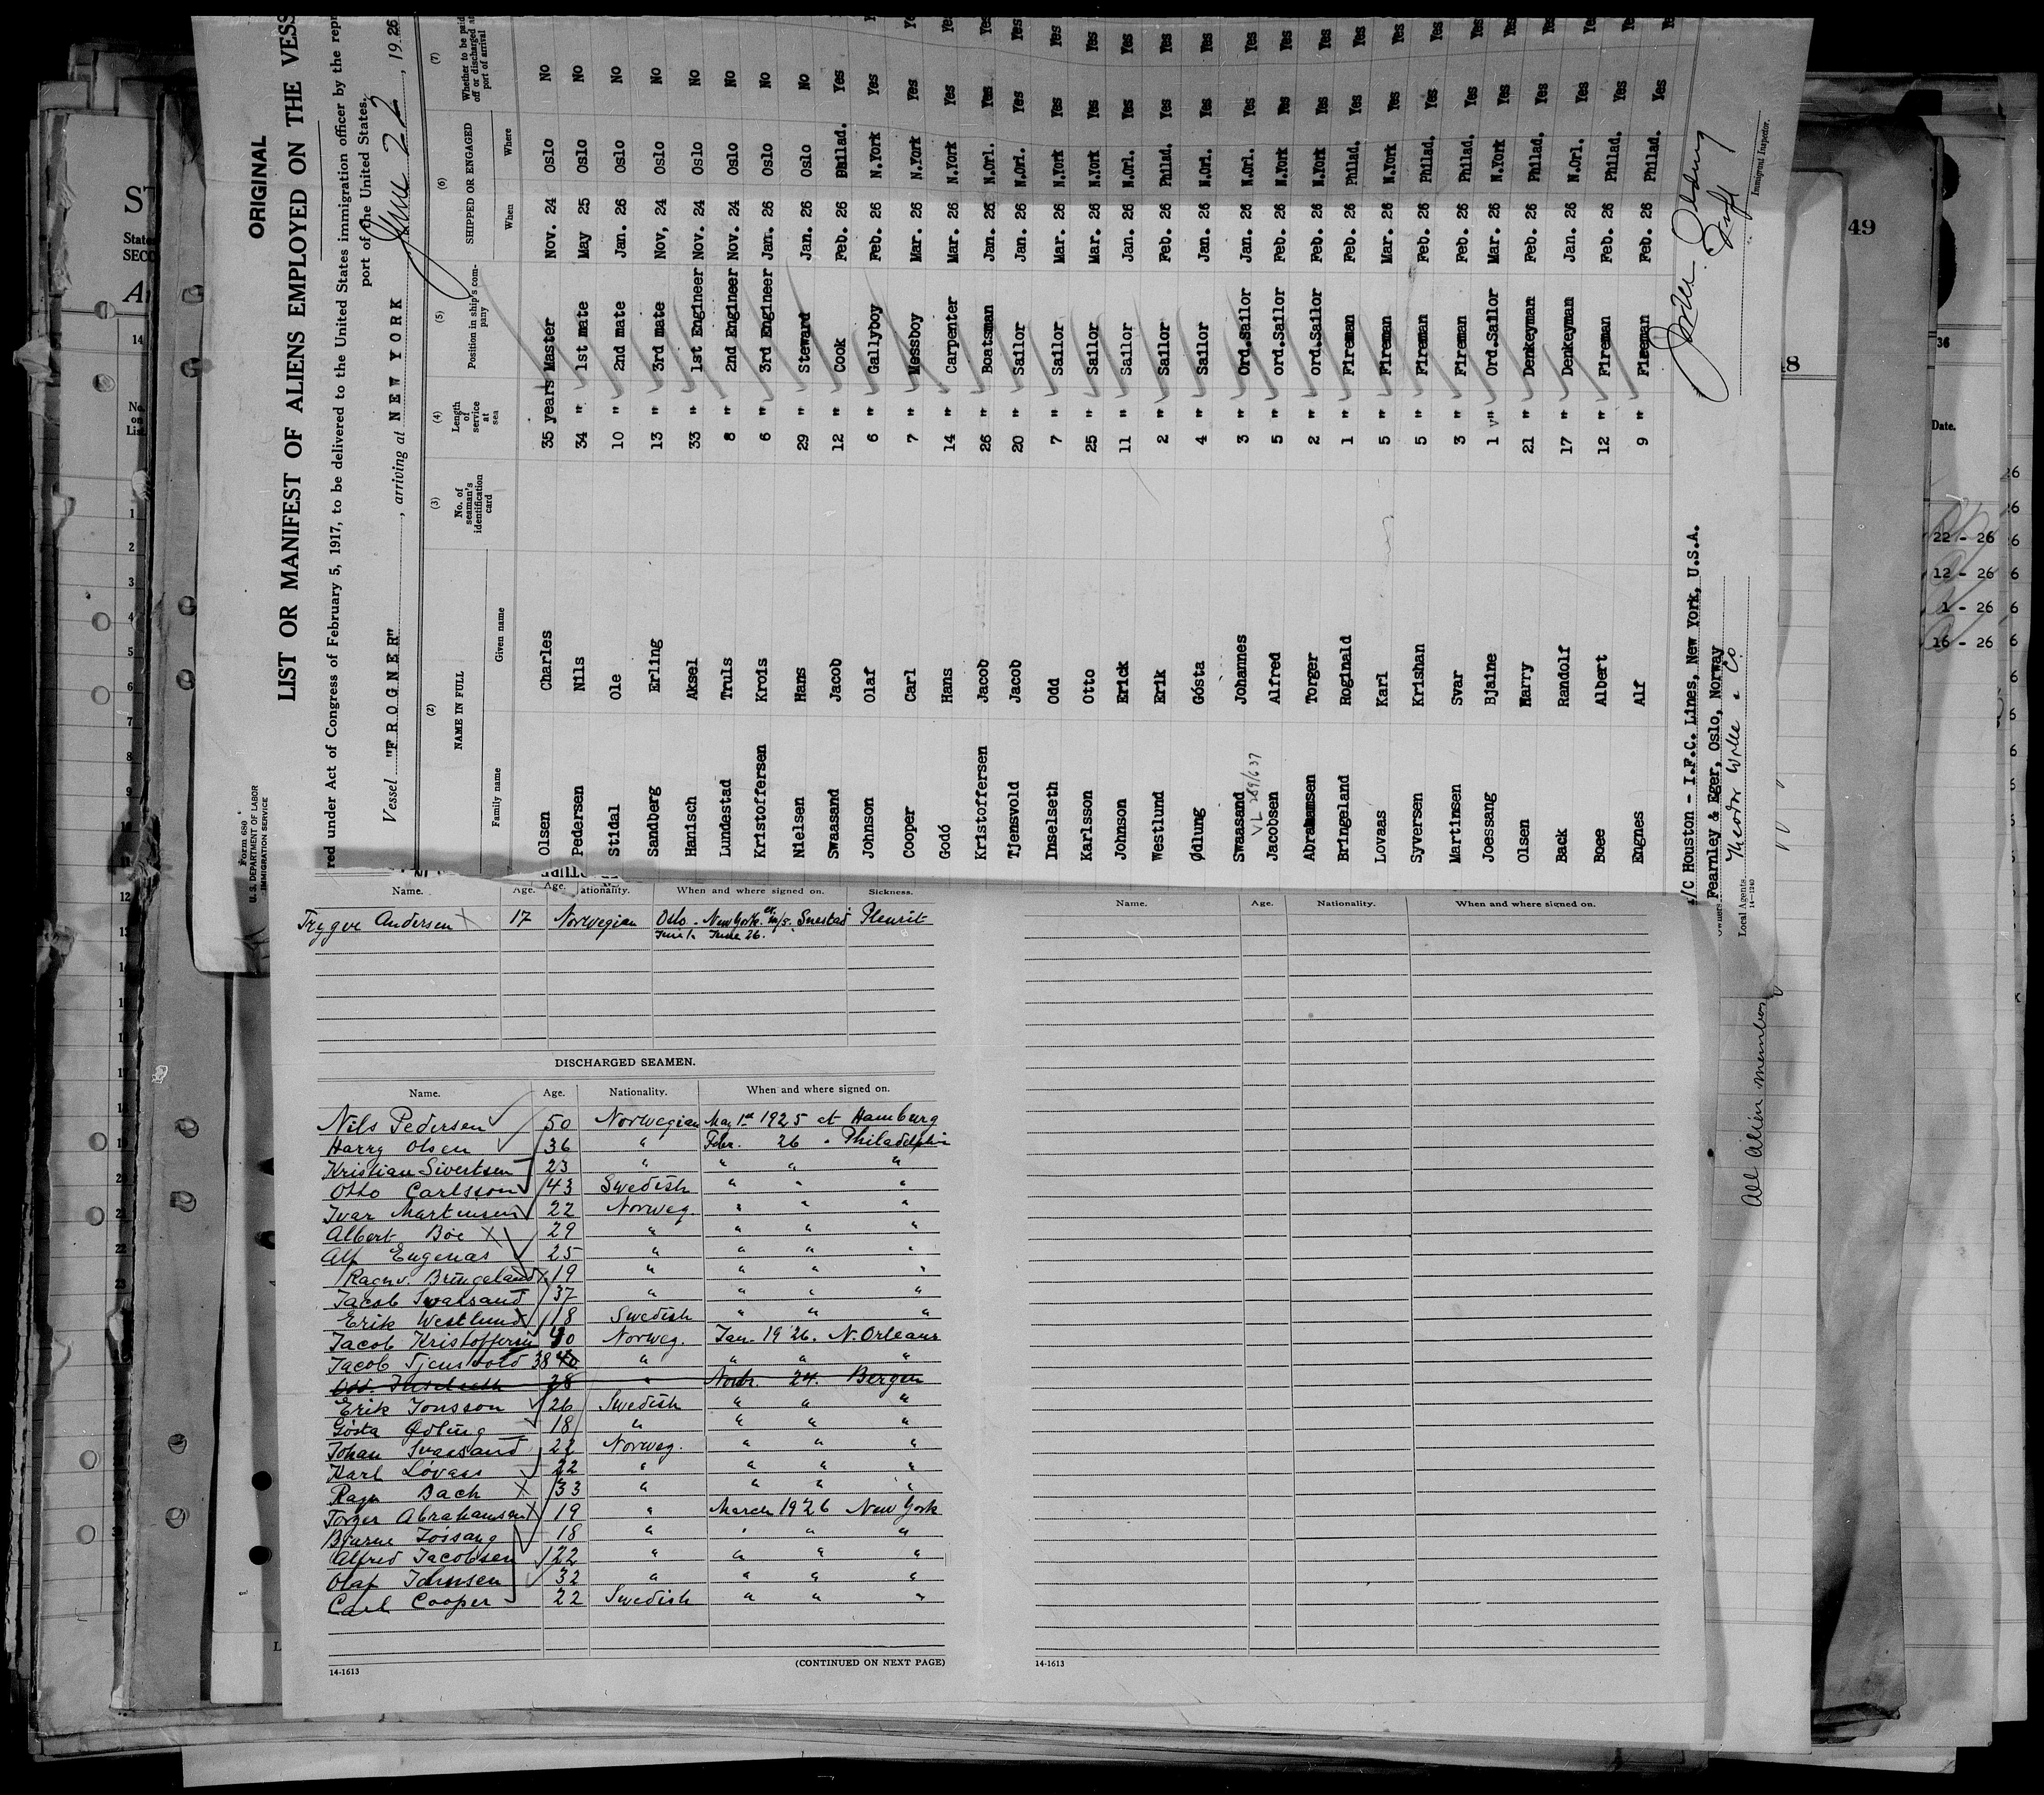 ORIGINAL
Form 680
U.S. DEPARTMENT OF LABOR
IMMIGRATION SERVICE
LIST OR MANIFEST OF ALIENS EMPLOYED ON THE VESS
red under Act of Congress of February 5, 1917, to be delivered to the United States immigration officer by the repr
port of the United States.
Vessel "FROGNER", arriving at NEW YORK June 22, 1926
(2) (3) (4) (5) (6) (7)
NAME IN FULL
Family name Given name
No. of seaman's identification card
Length of service at sea
Position in ship's company
SHIPPED OR ENGAGED
When Where
Whether to be paid off or discharged at port of arrival
Olsen Charles 35 years Master Nov. 24 Oslo No
Pedersen Nils 34 " 1st mate May 25 Oslo No
Stidal Ole 10 " 2nd mate Jan. 26 Oslo No
Sandberg Erling 13 " 3rd mate Nov, 24 Oslo No
Hanisch Aksel 33 " 1st Engineer Nov. 24 Oslo No
Lundestad Truls 8 " 2nd Engineer Nov. 24 Oslo No
Kristoffersen Krois 6 " 3rd Engineer Jan. 26 Oslo No
Nielsen Hans 29 " Steward Jan. 26 Oslo No
Swaasand Jacob 12 " Cook Feb. 26 Philad. Yes
Johnson Olaf 6 " Gallyboy Feb. 26 N.York Yes
Cooper Carl 7 " Messboy Mar. 26 N.York Yes Yes
Godó Hans 14 " Carpenter Mar. 26 N.York Yes Yes
Kristoffersen Jacob 26 " Boatsman Jan. 26 N.Orl. Yes Yes
Tjensvold Jacob 20 " Sailor Jan. 26 N.Orl. Yes Yes
Inselseth Odd 7 " Sailor Mar. 26 N.York Yes Yes
Karlsson Otto 25 " Sailor Mar. 26 N.York Yes Yes
Johnson Erick 11 " Sailor Jan. 26 N.Orl. Yes Yes
Westlund Erik 2 " Sailor Feb. 26 Philad. Yes Yes
Ødlung Gósta 4 " Sailor Jan. 26 N.Orl. Yes Yes
Swaasand Johannes 3 " Ord.Sailor Jan. 26 N.Orl. Yes Yes
VL 269/637
Jacobsen Alfred 5 " ord.Sailor Feb. 26 N.York Yes Yes
Abrahamsen Torger 2 " ord.Sailor Feb. 26 N.York Yes Yes
Bringeland Roginald 1 " Fireman Feb. 26 Philad. Yes Yes
Lovaas Karl 5 " Fireman Mar. 26 N.York Yes Yes
Syversen Krishan 5 " Fireman Feb. 26 Philad. Yes Yes
Martinsen Svar 3 " Fireman Feb. 26 Philad. Yes Yes
Joessang Bjaine 1 " Ord.Sailor Mar. 26 N.York Yes Yes
Olsen Harry 21 " Denkeyman Feb. 26 Philad. Yes Yes
Back Randolf 17 " Denkeyman Jan. 26 N.Orl. Yes Yes
Boee Albert 12 " Fireman Feb. 26 Philad. Yes Yes
Engnes Alf 9 " Fireman Feb. 26 Philad. Yes Yes
A/C Houston - I.F.C. Lines, New York, U.S.A.
Owners Fearnley & Eger, Oslo, Norway
Local Agents Theodor Wille & Co
14-1240
Immigrant Inspector.
Name. Age. Nationality. When and where signed on. Sickness.
Trygve Andersen X 17 Norwegian Oslo - New York. ex m/s. Snestad Pleurit
June 1. June 26.
DISCHARGED SEAMEN.
Name. Age. Nationality. When and where signed on.
Nils Pedersen 50 Norwegian May 1st 1925 at Hamburg
Harry Olsen 36 " Febr. 26 " Philadelphia
Kristian Sivertsen 23 " " " "
Otto Carlsson 43 Swedish " " "
Ivar Martensen 22 Norweg. " " "
Albert Boe X 29 " " " "
Alf Eugenas 25 " " " "
Ragnv. Bringeland X 19 " " " "
Jacob Svaasand 37 " " " "
Erik Westlund 18 Swedish " " "
Jacob Kristoffersen 40 Norweg. Jan. 1926. N. Orleans
Jacob Tjensvold 38 40 " " " "
Odd. Inselseth 28 " Novbr. 24. Bergen
Erik Jonsson 26 Swedish " " "
Gösta Ødling 18 " " " "
Johan Svaasand 22 Norweg. " " "
Karl Lövaas 22 " " " "
Ragn Bach X 33 " " " "
Torger Abrahamsen X 19 " March 1926 New York
Bjarne Jössang 18 " " " "
Alfred Jacobsen 22 " " " "
Olaf Johnsen 32 " " " "
Carl Cooper 22 Swedish " " "
14-1613
(CONTINUED ON NEXT PAGE)
Name. Age. Nationality. When and where signed on.
14-1613
All Alien members
49
36
Date.
22 - 26
12 - 26
1 - 26
16 - 26
State
SECO
14
No. on List
1
2
3
4
5
6
7
8
9
10
11
12